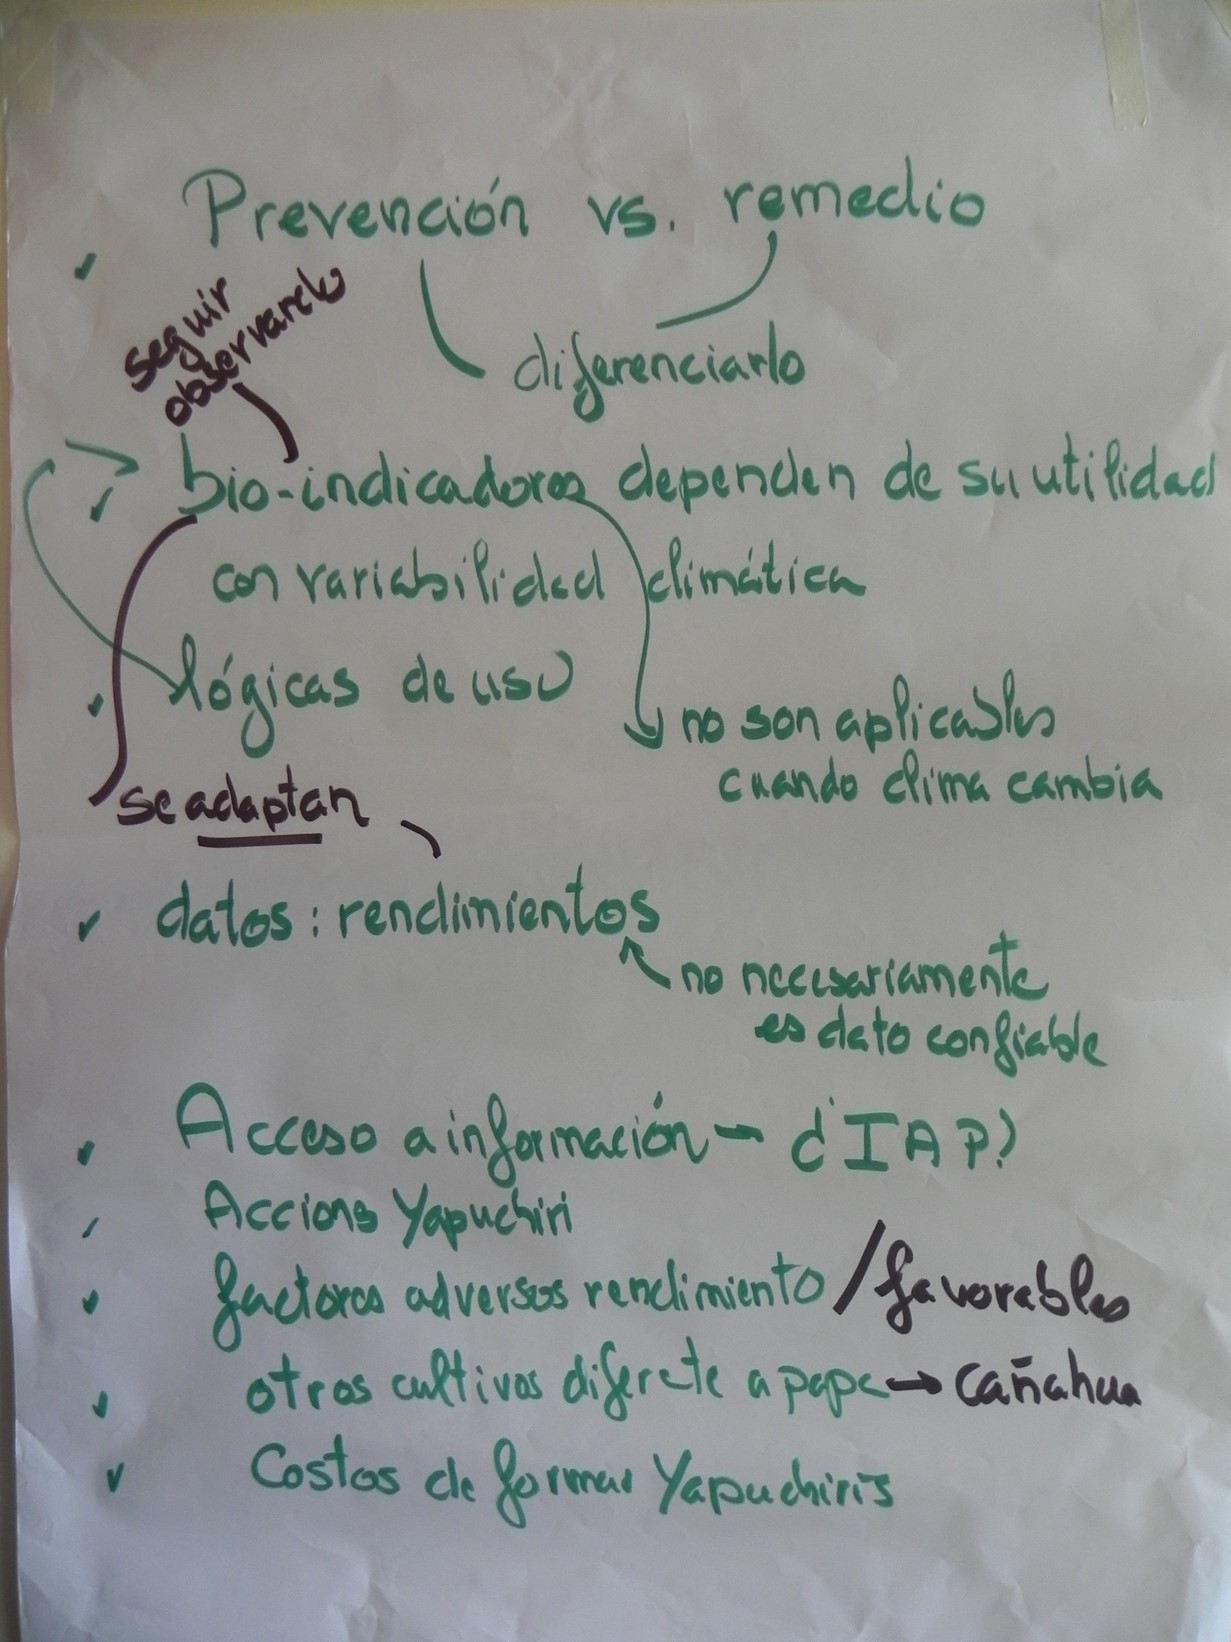 Prevención vs. remedio
diferenciarlo
seguir
observando
bio-indicadores dependen de su utilidad
con variabilidad climática
lógicas de uso
no son aplicables
cuando clima cambia
se adaptan
datos: rendimientos
no necesariamente
es dato confiable
Acceso a información - ¿IAP?
Accions Yapuchiri
factores adversos rendimiento / favorables
otros cultivos diferete a papa → cañahua
Costos de formar Yapuchiris